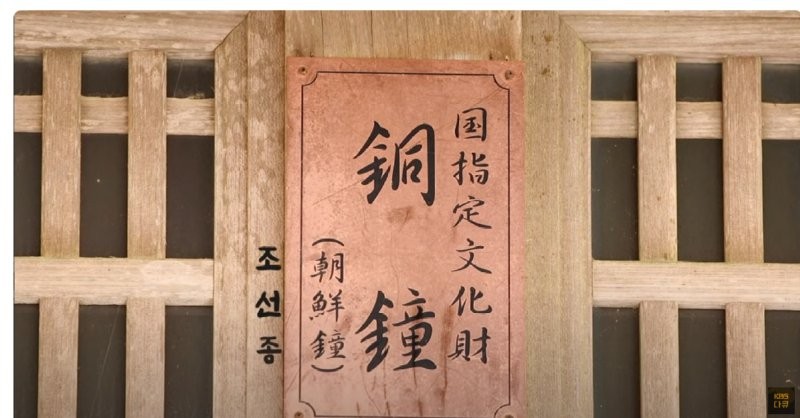 国指定文化財
銅鐘
(朝鮮鐘)
조선종
KBS
다큐